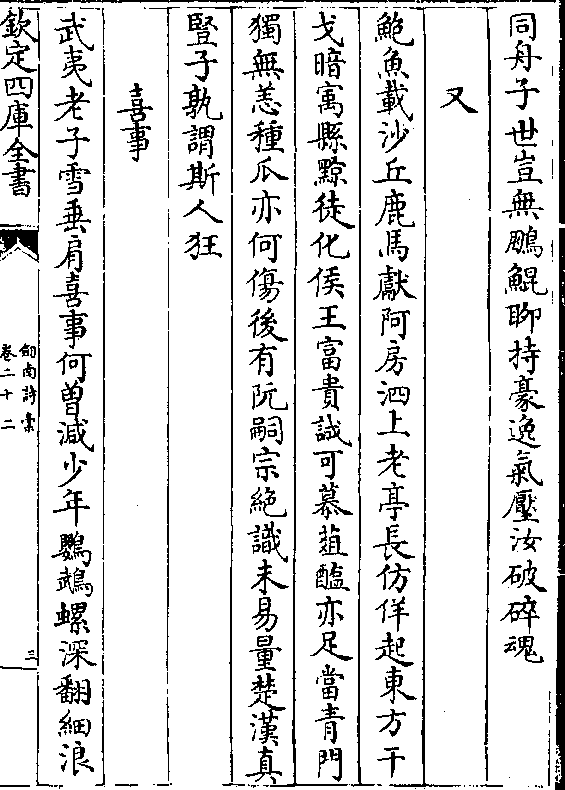 同舟子世豈無鵬鯤聊持豪逸氣壓汝破碎魂
又
鮑魚載沙丘鹿馬獻阿房泗上老亭長仿佯起東方干
戈暗寓縣黥徒化侯王富貴誠可慕葅醢亦足當青門
獨無恙種瓜亦何傷後有阮嗣宗絶識未易量楚漢真
豎子孰謂斯人狂
喜事
武夷老子雪垂肩喜事何曾減少年鸚鵡螺深翻細浪
欽定四庫全書
劎南詩槀
卷二十二
三